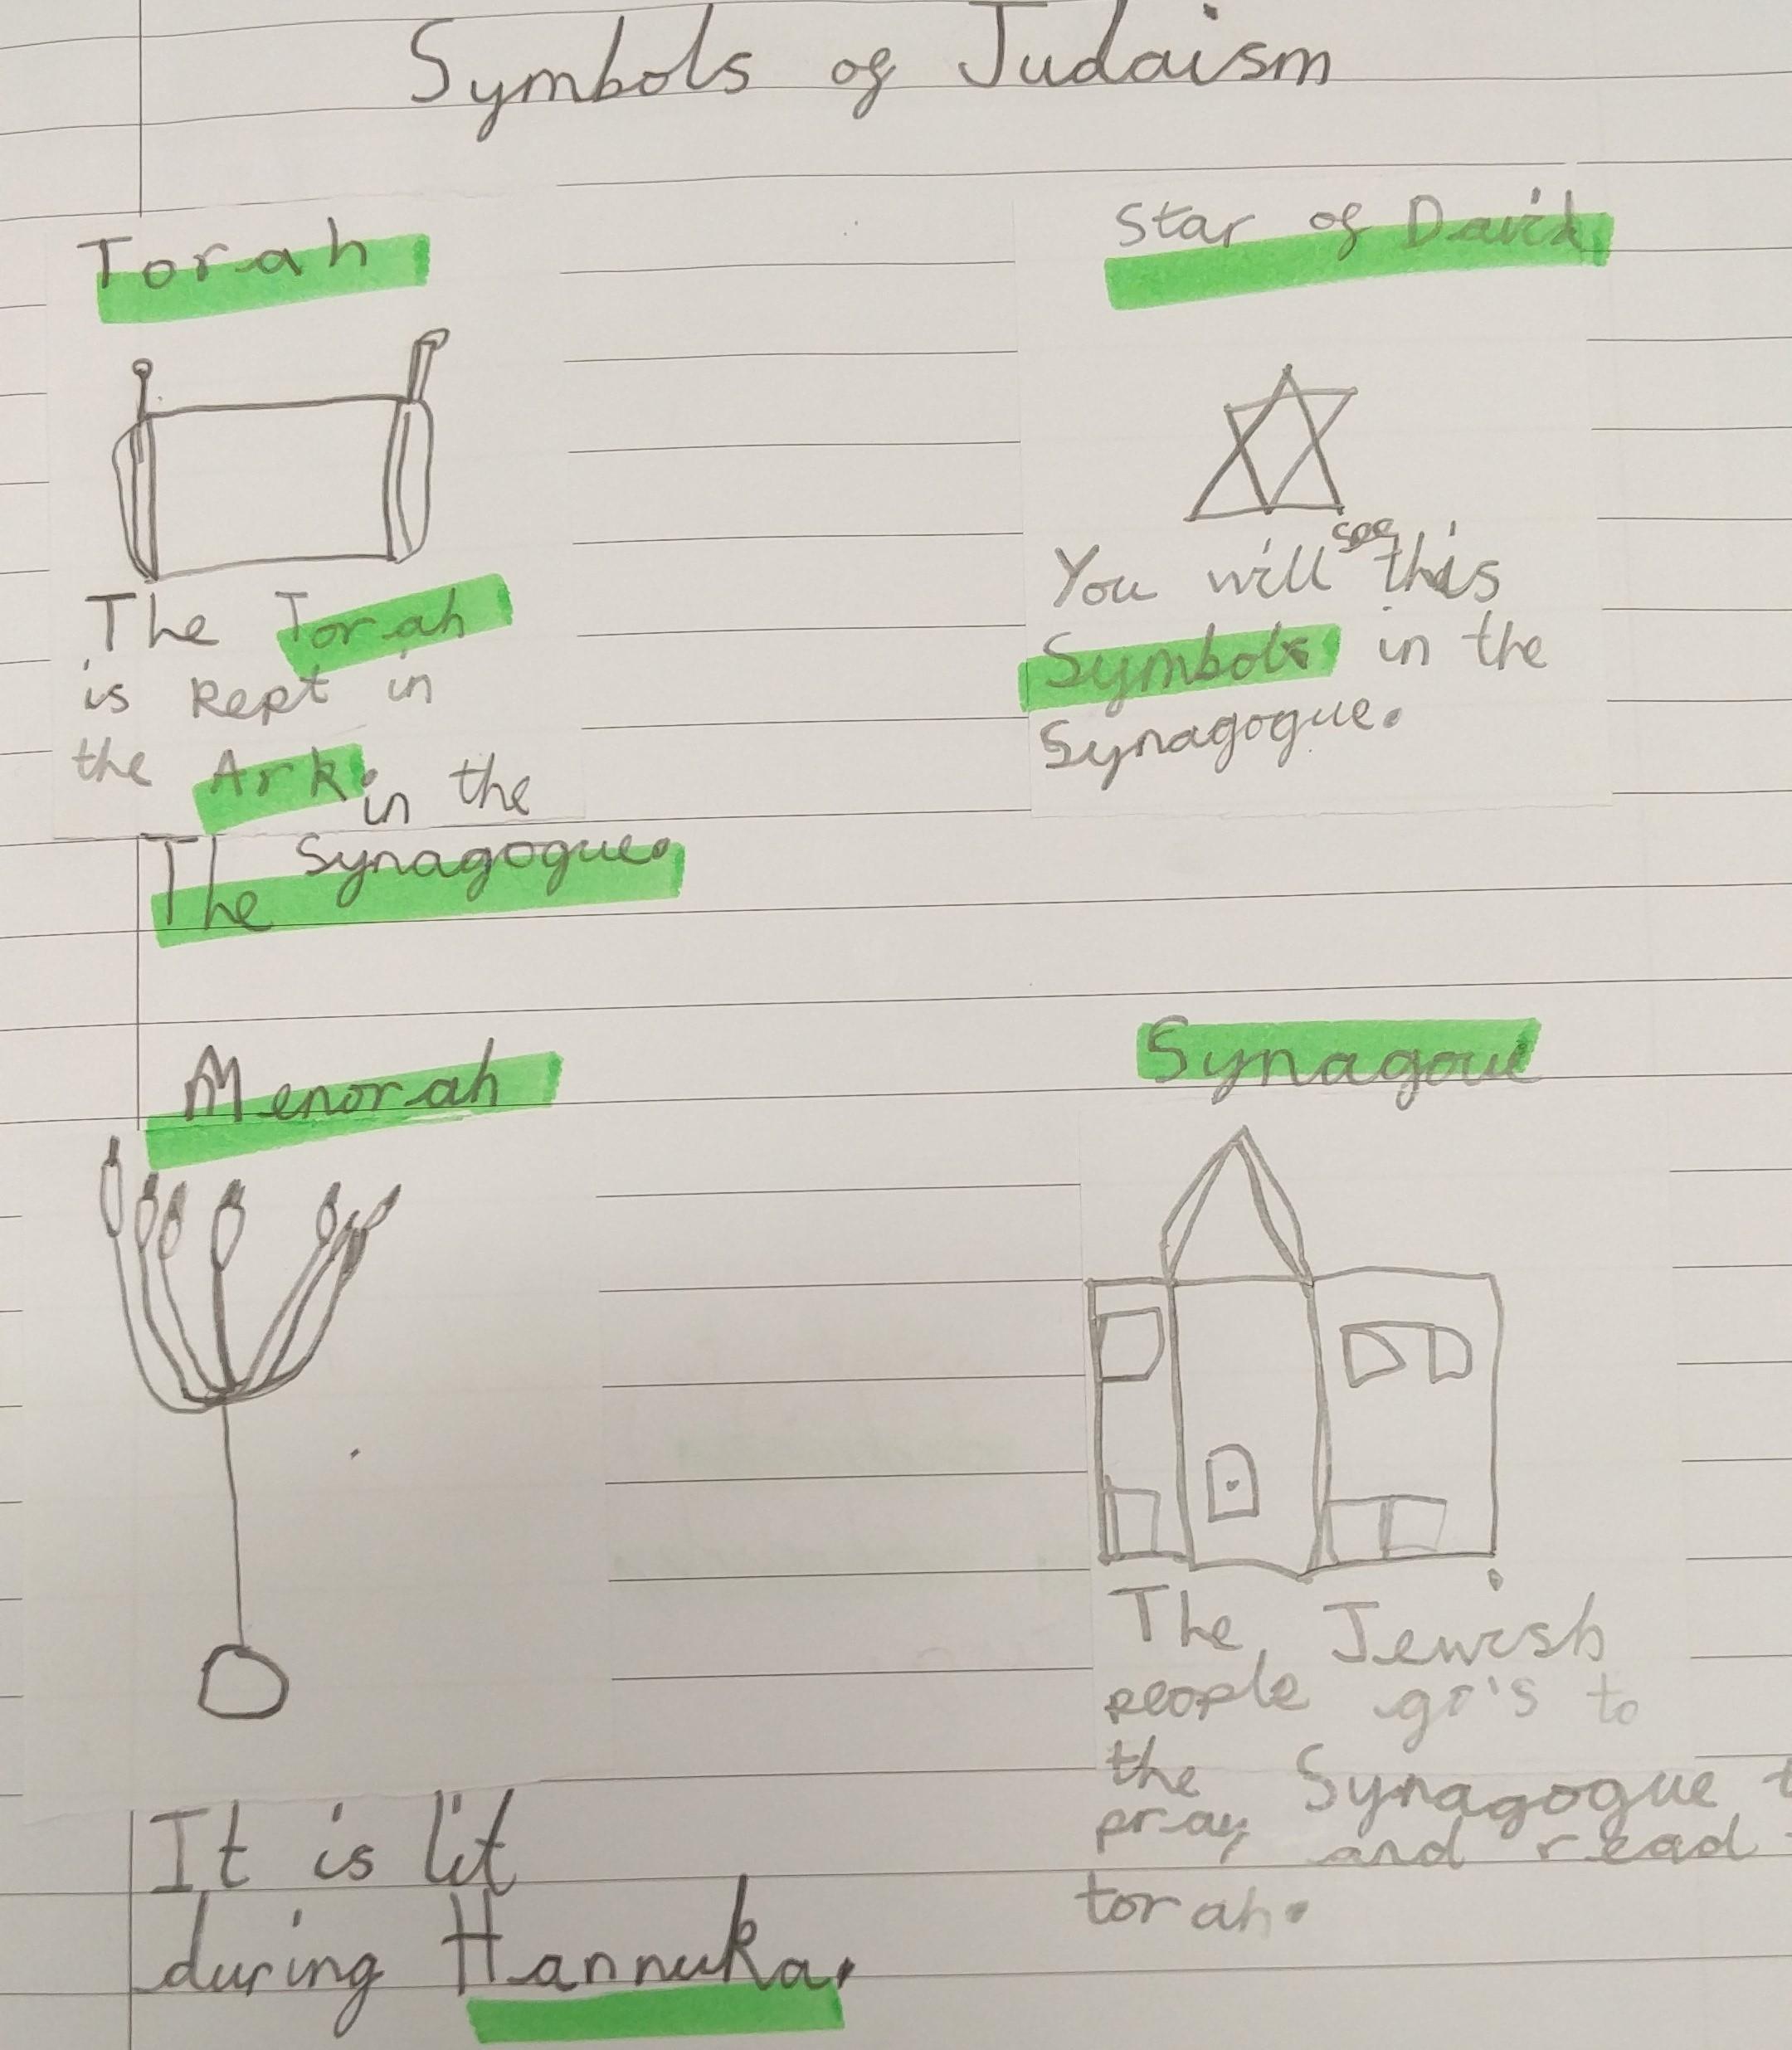 Symbols of Judaism
Torah
The Torah
is kept in
the Ark. in the
The Synagogue.
Star of David
You will see this
Symbols in the
Synagogue.
Menorah
It is lit
during Hannuka.
Synagoue
The Jewish
people go's to
the Synagogue
pray, and read
torah.